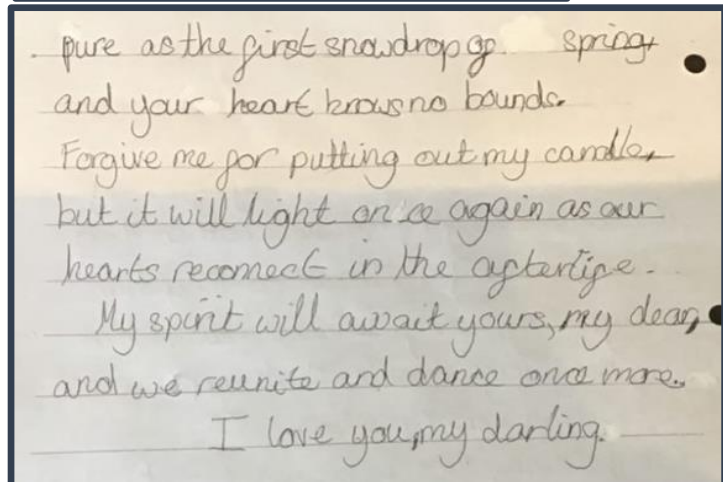 pure as the first snowdrop of spring,
and your heart knows no bounds.
Forgive me for putting out my candle,
but it will light once again as our
hearts reconnect in the afterlife.
My spirit will await yours, my dear,
and we reunite and dance once more.
I love you, my darling.